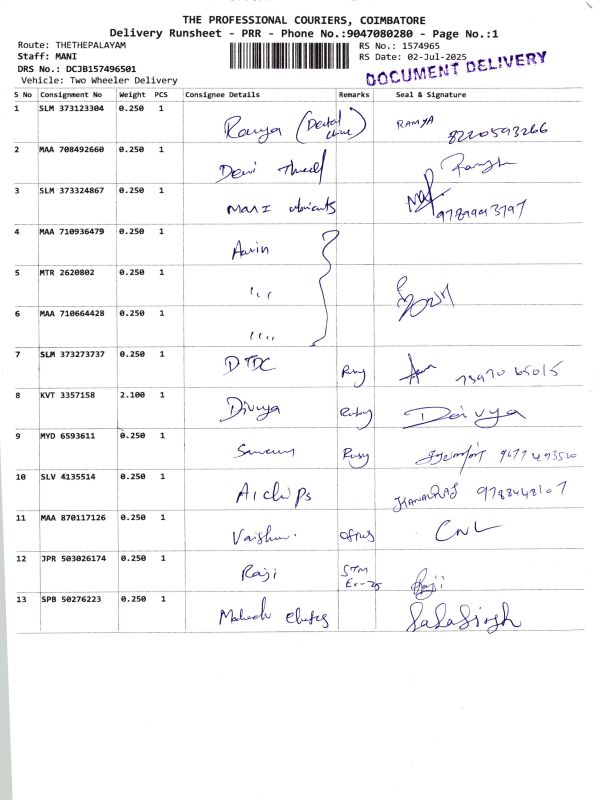 THE PROFESSIONAL COURIERS, COIMBATORE
Delivery Runsheet - PRR - Phone No.:9047080280 - Page No.:1
Route: THETHEPALAYAM
Staff: MANI
DRS No.: DCJB157496501
Vehicle: Two Wheeler Delivery
RS No.: 1574965
RS Date: 02-Jul-2025
DOCUMENT DELIVERY
S No Consignment No Weight PCS Consignee Details Remarks Seal & Signature
1 SLM 373123304 0.250 1 Ramya (Dental RAMYA 8220593266
2 MAA 708492660 0.250 1 Devi
3 SLM 373324867 0.250 1 MANI 9789993797
4 MAA 710936479 0.250 1
5 MTR 2620802 0.250 1
6 MAA 710664428 0.250 1
7 SLM 373273737 0.250 1 DTDC
8 KVT 3357158 2.100 1 Divya Divya
9 MYD 6593611 0.250 1
10 SLV 4135514 0.250 1 AI chips
11 MAA 870117126 0.250 1 CNL
12 JPR 503026174 0.250 1 Raji STM Raji
13 SPB 50276223 0.250 1 Mahesh